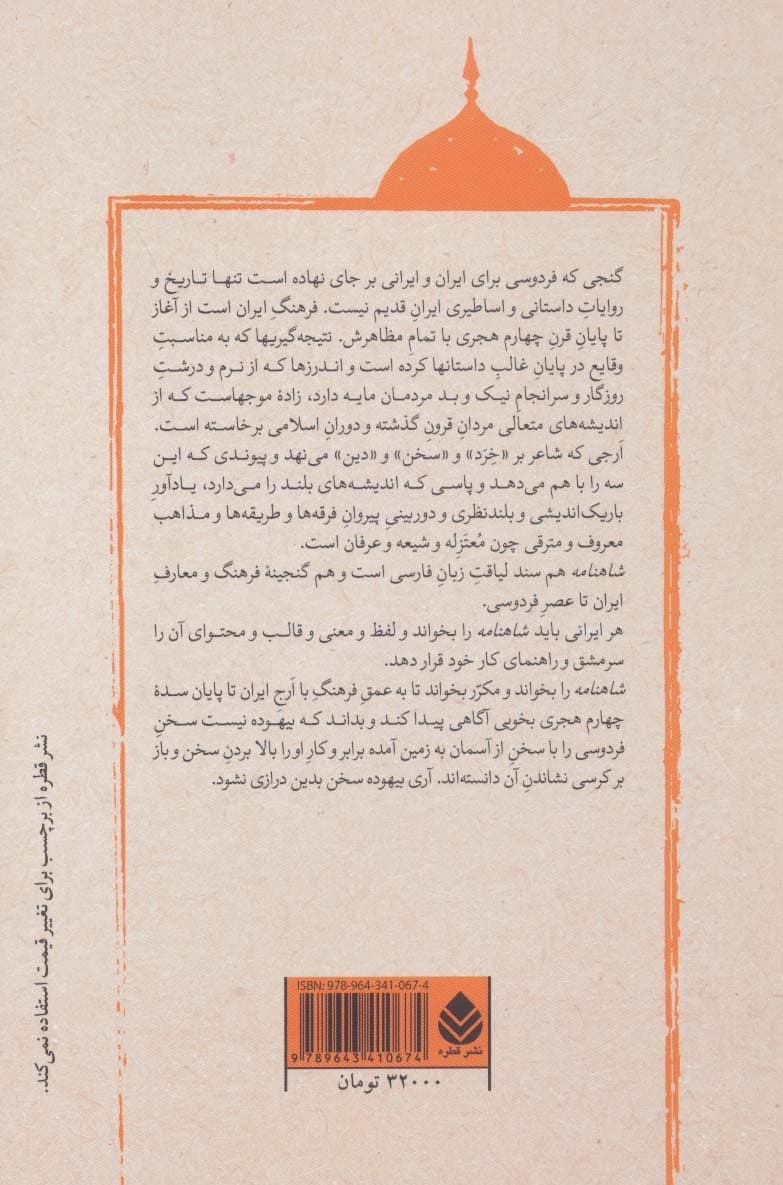 گنجی که فردوسی برای ایران و ایرانی بر جای نهاده است تنها تاریخ و
روایاتِ داستانی و اساطیری ایرانِ قدیم نیست. فرهنگِ ایران است از آغاز
تا پایانِ قرنِ چهارم هجری با تمامِ مظاهرش. نتیجه‌گیریها که به مناسبتِ
وقایع در پایانِ غالبِ داستانها کرده است و اندرزها که از نرم و درشتِ
روزگار و سرانجامِ نیک و بد مردمان مایه دارد، زادهٔ موجهاست که از
اندیشه‌های متعالی مردانِ قرونِ گذشته و دورانِ اسلامی برخاسته است.
اَرجی که شاعر بر «خِرَد» و «سخن» و «دین» می‌نهد و پیوندی که این
سه را با هم می‌دهد و پاسی که اندیشه‌های بلند را می‌دارد، یادآورِ
باریک‌اندیشی و بلندنظری و دوربینیِ پیروانِ فرقه‌ها و طریقه‌ها و مذاهب
معروف و مترقی چون مُعتَزِله و شیعه و عرفان است.
شاهنامه هم سند لیاقتِ زبانِ فارسی است و هم گنجینهٔ فرهنگ و معارفِ
ایران تا عصرِ فردوسی.
هر ایرانی باید شاهنامه را بخواند و لفظ و معنی و قالب و محتوای آن را
سرمشق و راهنمای کار خود قرار دهد.
شاهنامه را بخواند و مکرّر بخواند تا به عمقِ فرهنگِ با اَرجِ ایران تا پایان سدهٔ
چهارم هجری بخوبی آگاهی پیدا کند و بداند که بیهوده نیست سخنِ
فردوسی را با سخنِ از آسمان به زمین آمده برابر و کارِ او را بالا بردنِ سخن و باز
بر کرسی نشاندنِ آن دانسته‌اند. آری بیهوده سخن بدین درازی نشود.
نشر قطره از برچسب برای تغییر قیمت استفاده نمی‌کند.
ISBN: 978-964-341-067-4
9 789643 410674
نشر قطره
۳۲۰۰۰ تومان